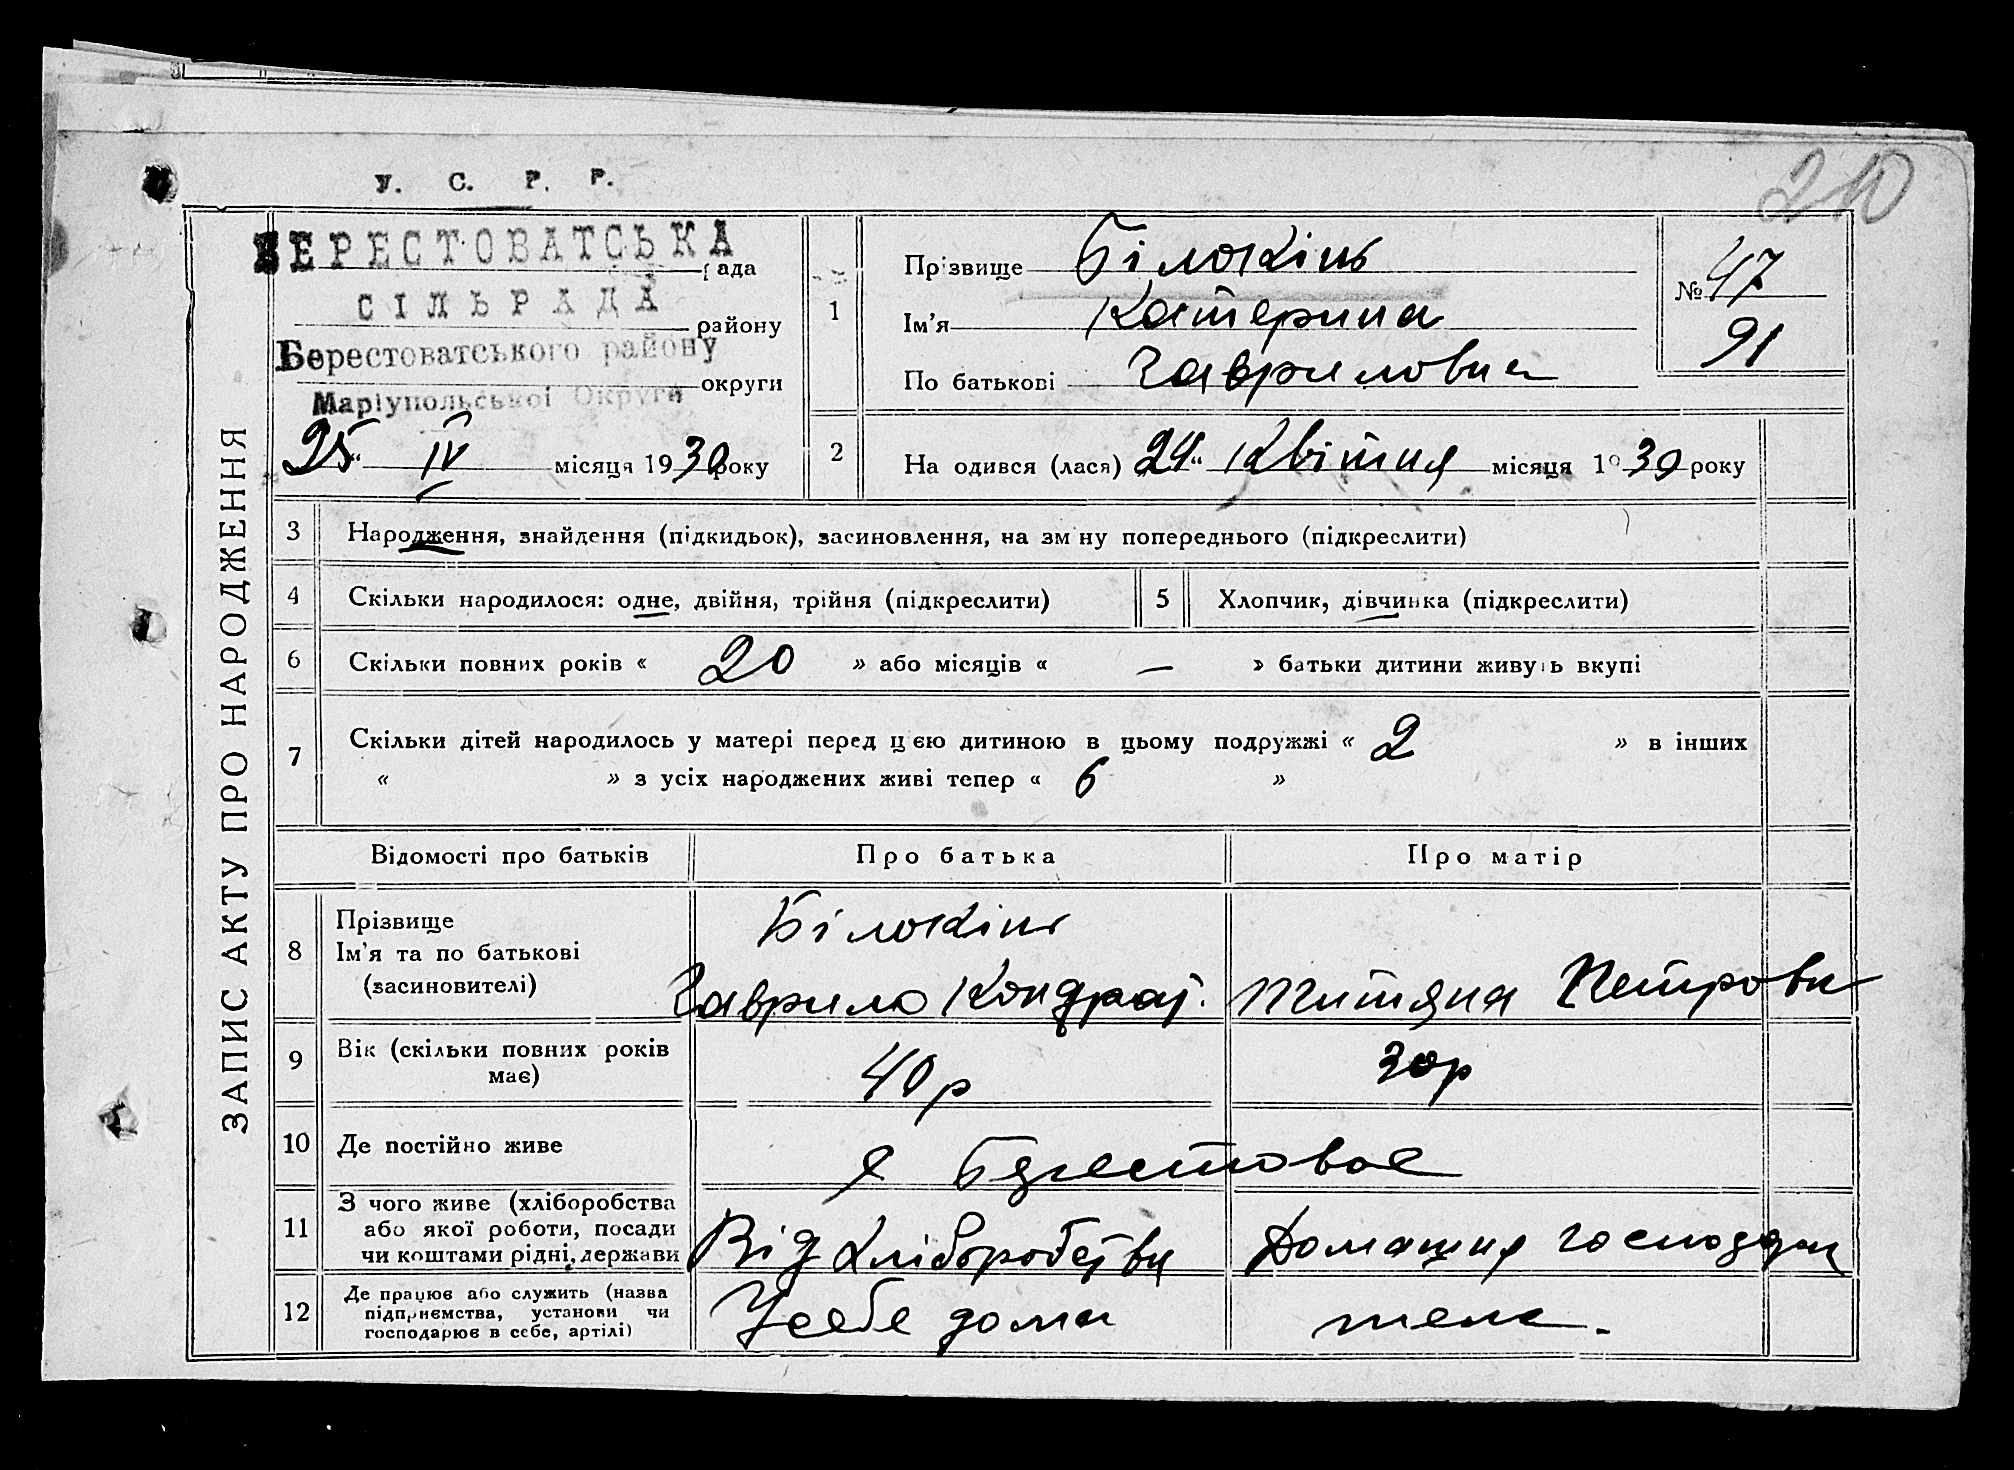 210
У. С. Р. Р.
БЕРЕСТОВАТСЬКА рада
СІЛЬРАДА району
Берестоватського району
округи
Маріупольської Округи
25 " IV місяця 1930 року
ЗАПИС АКТУ ПРО НАРОДЖЕННЯ
1
Прізвище Білокінь
Ім'я Катерина
По батькові Гавриловна
№ 47
91
2 На одився (лася) 24 " Квітня місяця 1930 року
3 Народження, знайдення (підкидьок), засиновлення, на зм ну попереднього (підкреслити)
4 Скільки народилося: одне, двійня, трійня (підкреслити)
5 Хлопчик, дівчинка (підкреслити)
6 Скільки повних років « 20 » або місяців « — » батьки дитини живуть вкупі
7 Скільки дітей народилось у матері перед цією дитиною в цьому подружжі « 2 » в інших
« » з усіх народжених живі тепер « 6 »
Відомості про батьків Про батька Про матір
8 Прізвище
Ім'я та по батькові
(засиновителі)
Білокінь
Гаврило Кондрат.
Титяна Петровн
9 Вік (скільки повних років
має)
40р
30р
10 Де постійно живе
Берестовое
11 З чого живе (хліборобства
або якої роботи, посади
чи коштами рідні, держави
Від хліборобства
Домашня господар
12 Де працює або служить (назва
підприємства, установи чи
господарює в себе, артілі)
У себе дома
теле.